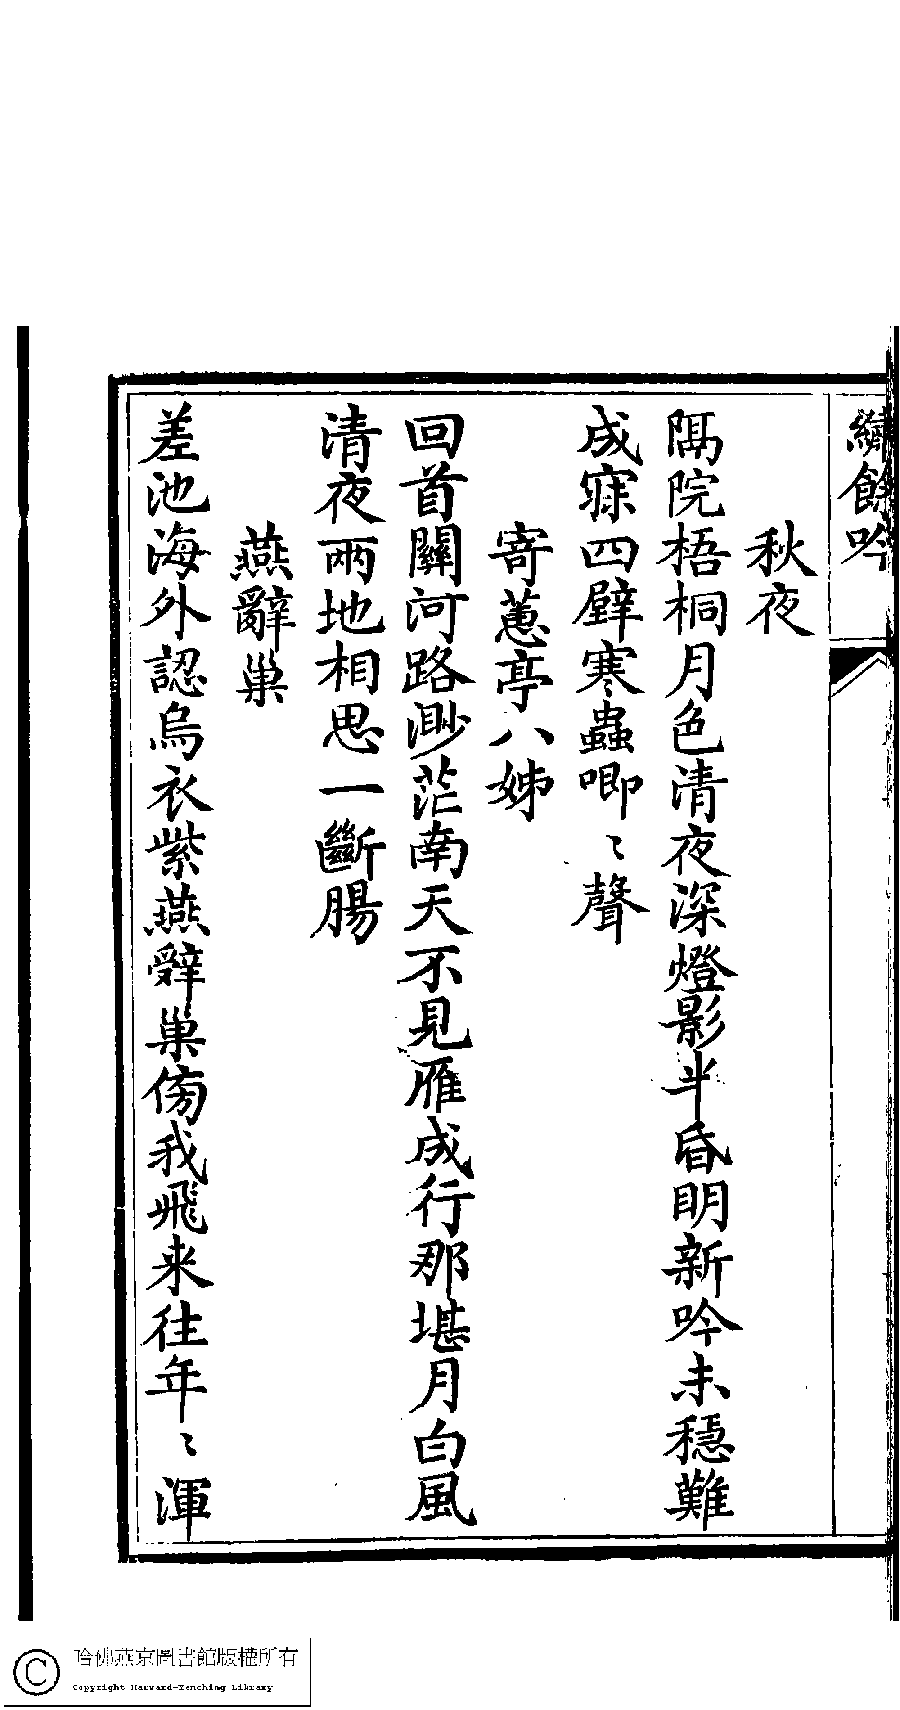 繡餘吟
秋夜
隅院梧桐月色清夜深燈影半昏明新吟未穩難
成寐四壁寒蟲唧〻聲
寄蕙亭八姊
回首關河路渺茫南天不見雁成行那堪月白風
清夜兩地相思一斷腸
燕辭巢
差池海外認烏衣紫燕辤巢傍我飛来往年〻渾
哈佛燕京圖書館版權所有
Copyright Harvard-Yenching Library